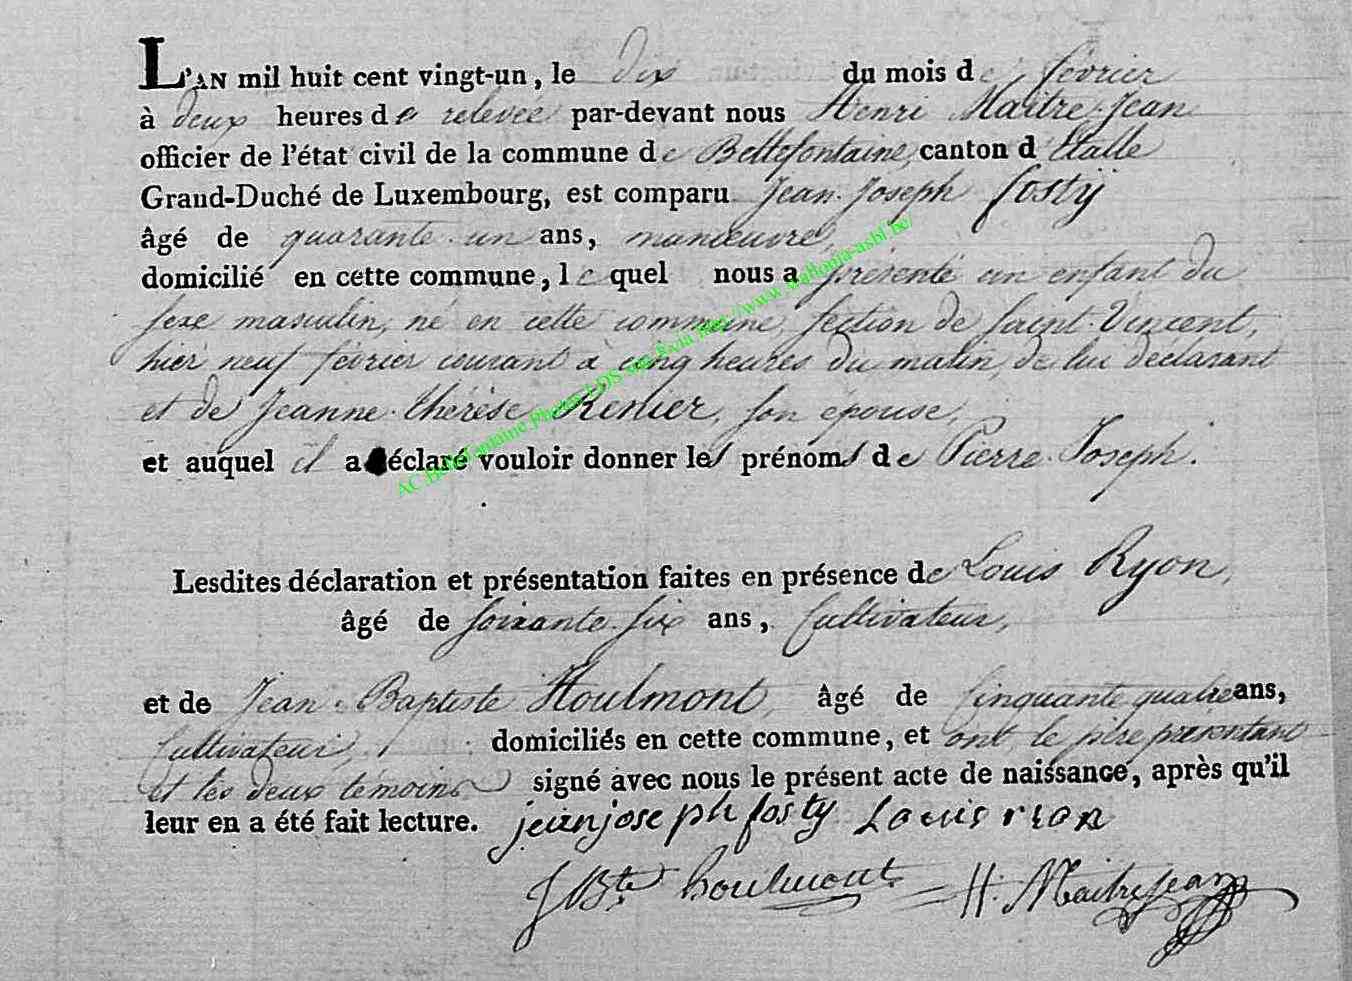 L'AN mil huit cent vingt-un, le dix du mois de février
à deux heures de relevée par-devant nous Henri Maître-Jean
officier de l'état civil de la commune de Bellefontaine, canton d'Etalle
Grand-Duché de Luxembourg, est comparu Jean-Joseph fostÿ
âgé de quarante-un ans, manœuvre,
domicilié en cette commune, lequel nous a présenté un enfant du
sexe masculin, né en cette commune, section de saint-Vincent,
hier neuf février courant à cinq heures du matin, de lui déclarant
et de Jeanne-thérèse Renier, son épouse,
et auquel il a déclaré vouloir donner les prénoms de Pierre-Joseph.
Lesdites déclaration et présentation faites en présence de Louis Ryon,
âgé de soixante-six ans, Cultivateur,
et de Jean-Baptiste Houlmont, âgé de Cinquante quatre ans,
Cultivateur, domiciliés en cette commune, et ont le père
et les deux témoins signé avec nous le présent acte de naissance, après qu'il
leur en a été fait lecture. jeanjoseph fosty Louis rion
JBte houlmont H. Maitrejean
AC Bellefontaine Photos LDS via http://www.wallonia-asbl.be/